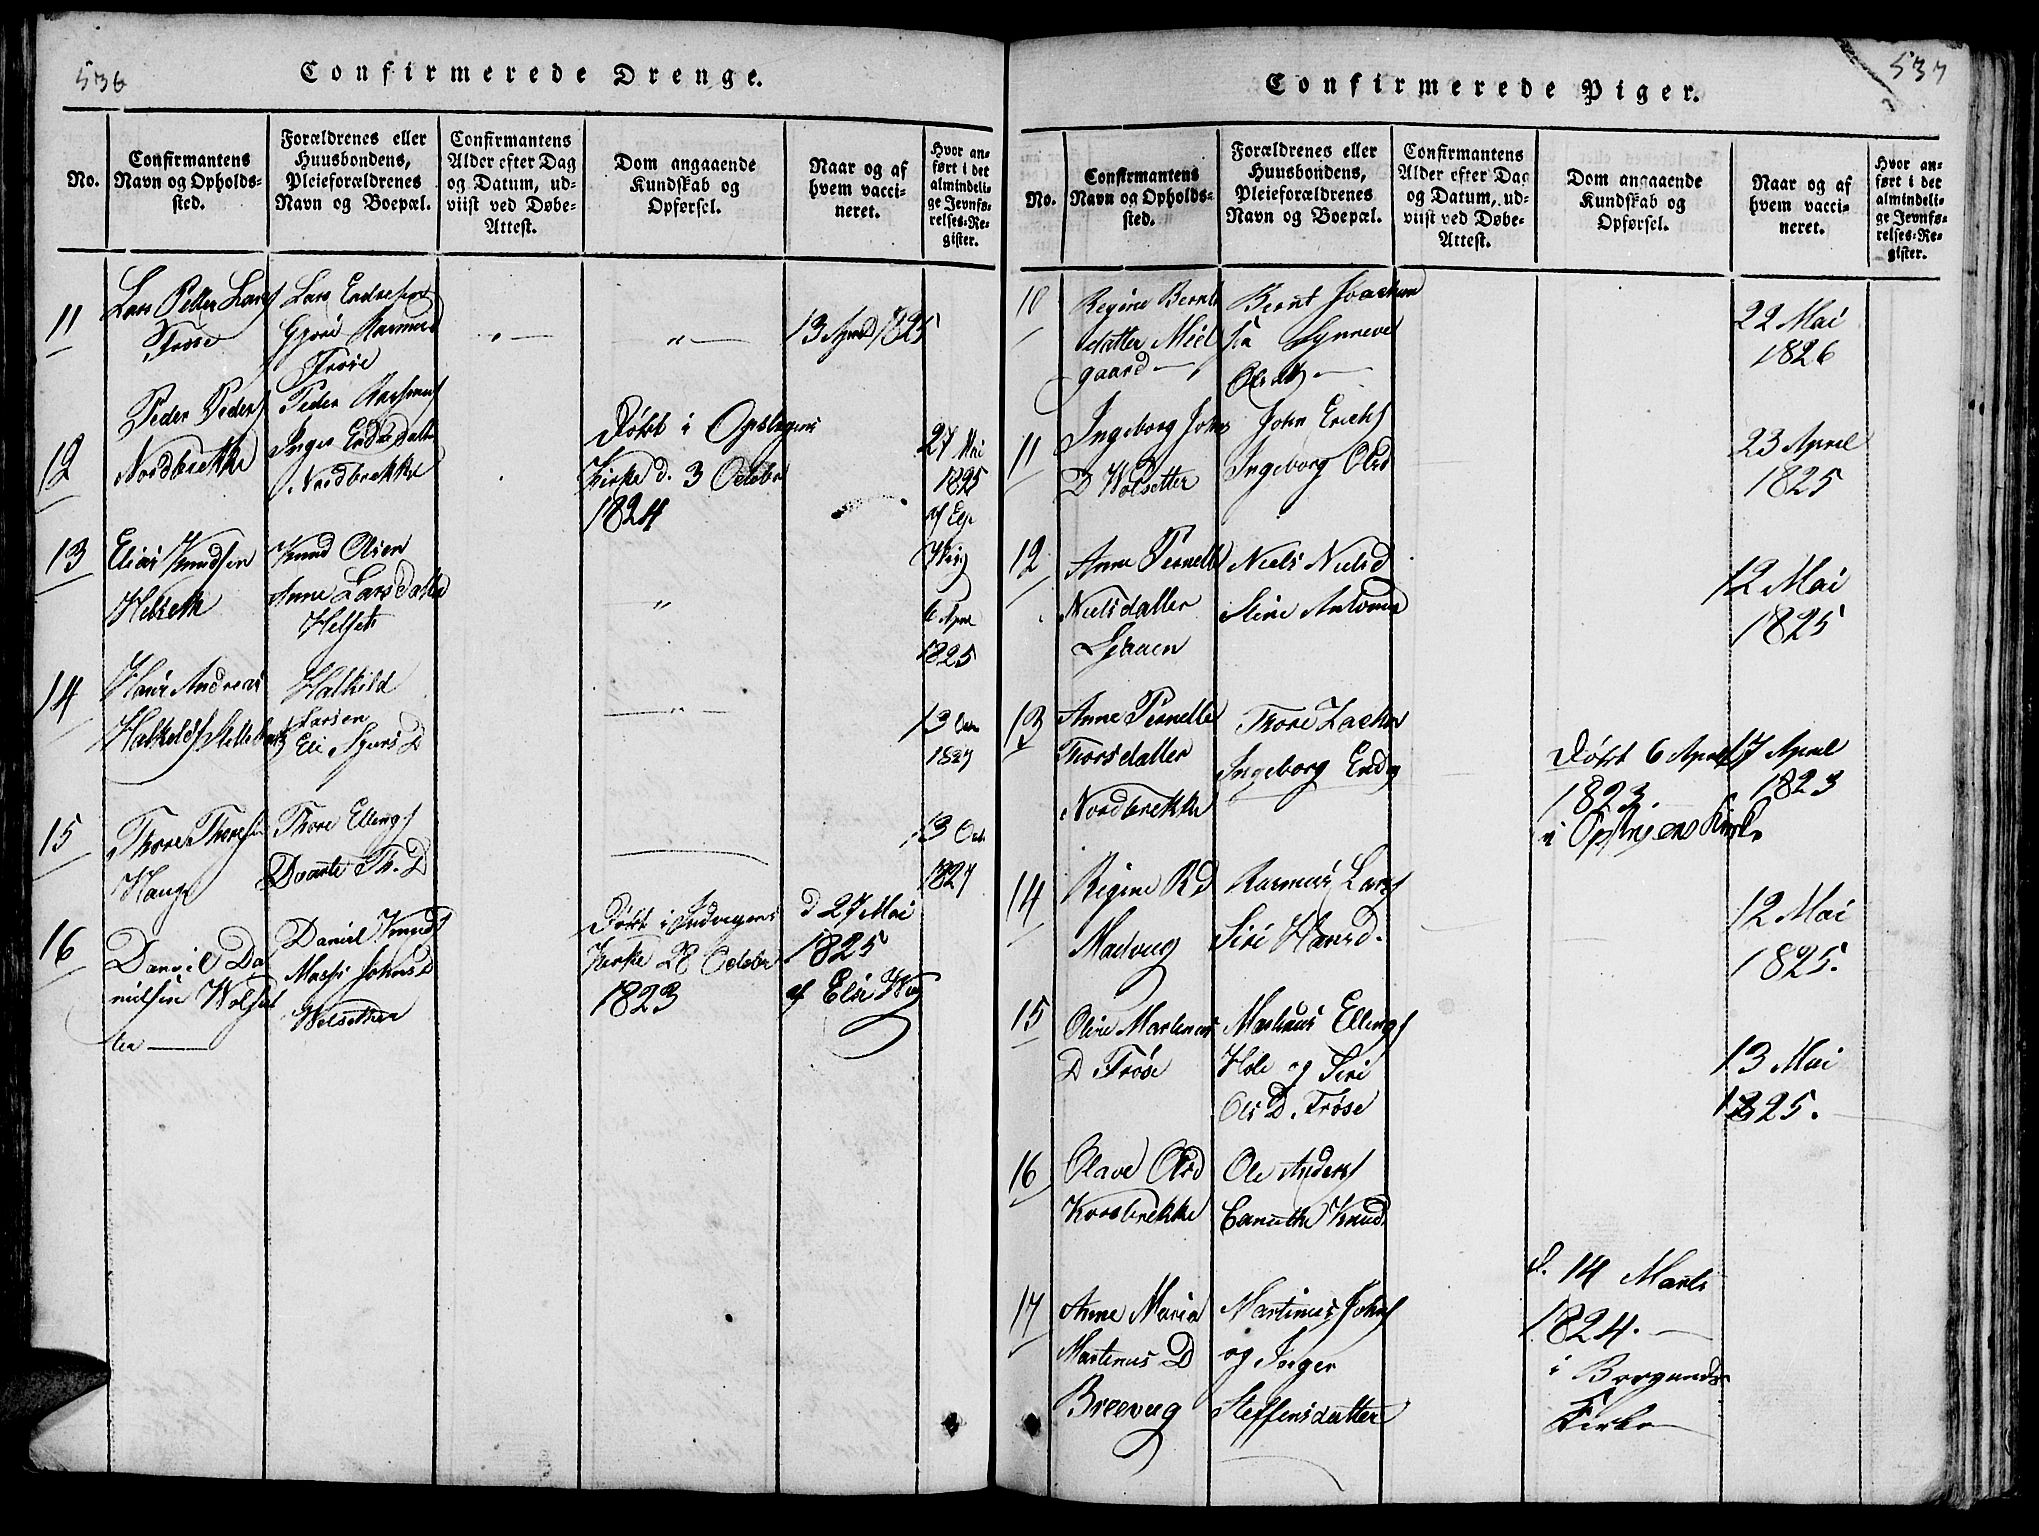 536
Confirmerede Drenge.
No.
Confirmantens
Navn og Opholds-
sted.
Forældrenes eller
Huusbondens,
Pleieforældrenes
Navn og Boepæl.
Confirmantens
Alder efter Dag
og Datum, ud-
viist ved Døbe-
Attest.
Dom angaaende
Kundskab og
Opførsel.
Naar og af
hvem vacci-
neret.
Hvor an-
ført i det
almindeli-
ge Jevnfø-
relses-Re-
gister.
11
Lars Petter Lars
Frøse
Lars Endresen
Rasmusd
Frøse
13 April 1825
12
Peder Peders
Nordbrekke
Peder Rasmus
Inger Endredatter
Nordbrekke
Døbt i
Kirke d. 3 October
1824
27 Mai
1825
af
13
Elias Knudsen
Helseth
Knud Olsen
Anne Larsdatter
Helseth
6 Apr
1825
14
Hans Andreas
Halkild
Larsen
Eli D
13 Oct
1827
15
Thore Thoresen
Hauge
Thore Ellings
Th. D
13 Oct
1827
16
Daniel Da
nielsen Wolset
ter
Daniel Knuds
Johns D
Wolsetter
Døbt i
Kirke 28 October
1823
d 27 Mai
1825
af
537
Confirmerede Piger.
No.
Confirmantens
Navn og Opholds-
sted.
Forældrenes eller
Huusbondens,
Pleieforældrenes
Navn og Boepæl.
Confirmantens
Alder efter Dag
og Datum, ud-
viist ved Døbe-
Attest.
Dom angaaende
Kundskab og
Opførsel.
Naar og af
hvem vacci-
neret.
Hvor an-
ført i det
almindeli-
ge Jevnfø-
relses-Re-
gister.
10
Regine Bernts
datter Miel
gaard
Bernt Joachim
Synneve
Olsdtr
22 Mai
1826
11
Ingeborg Johns
D Wolsetter
John Erichs
Ingeborg Olsd
23 April
1825
12
Anne Pernelle
Nielsdatter
Niels Nielsd
12 Mai
1825
13
Anne Pernelle
Thorsdatter
Nordbrekke
Thore
Ingeborg
Døbt 6 April
1823
i Kirke
7 April
1823
14
Regine R d
Madveeg
Rasmus Lars
Siri Hansd.
12 Mai
1825.
15
Oline Martinus
D Frøse
Martinus Ellings
Hole og Siri
Ols D. Frøse
13 Mai
1825.
16
Olave Olsd
Korsbrekke
Ole Anders
Canutte Knuds
17
Anne Maria
Martinus D
Breeveeg
Martinus Johns
og Inger
Steffensdatter
d. 14 Marts
1824.
i Borgunds
Kirke